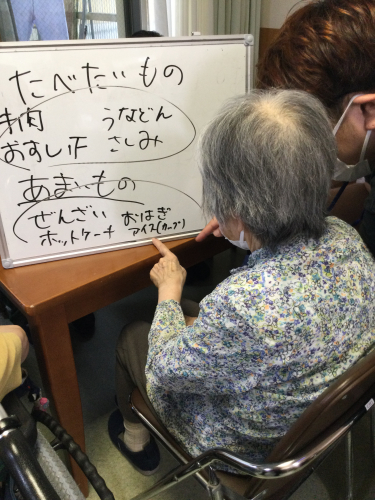 たべたいもの
肉 うなどん
おすし 下 さしみ
あまいもの
ぜんざい おはぎ
ホットケーキ アイス(カープ)